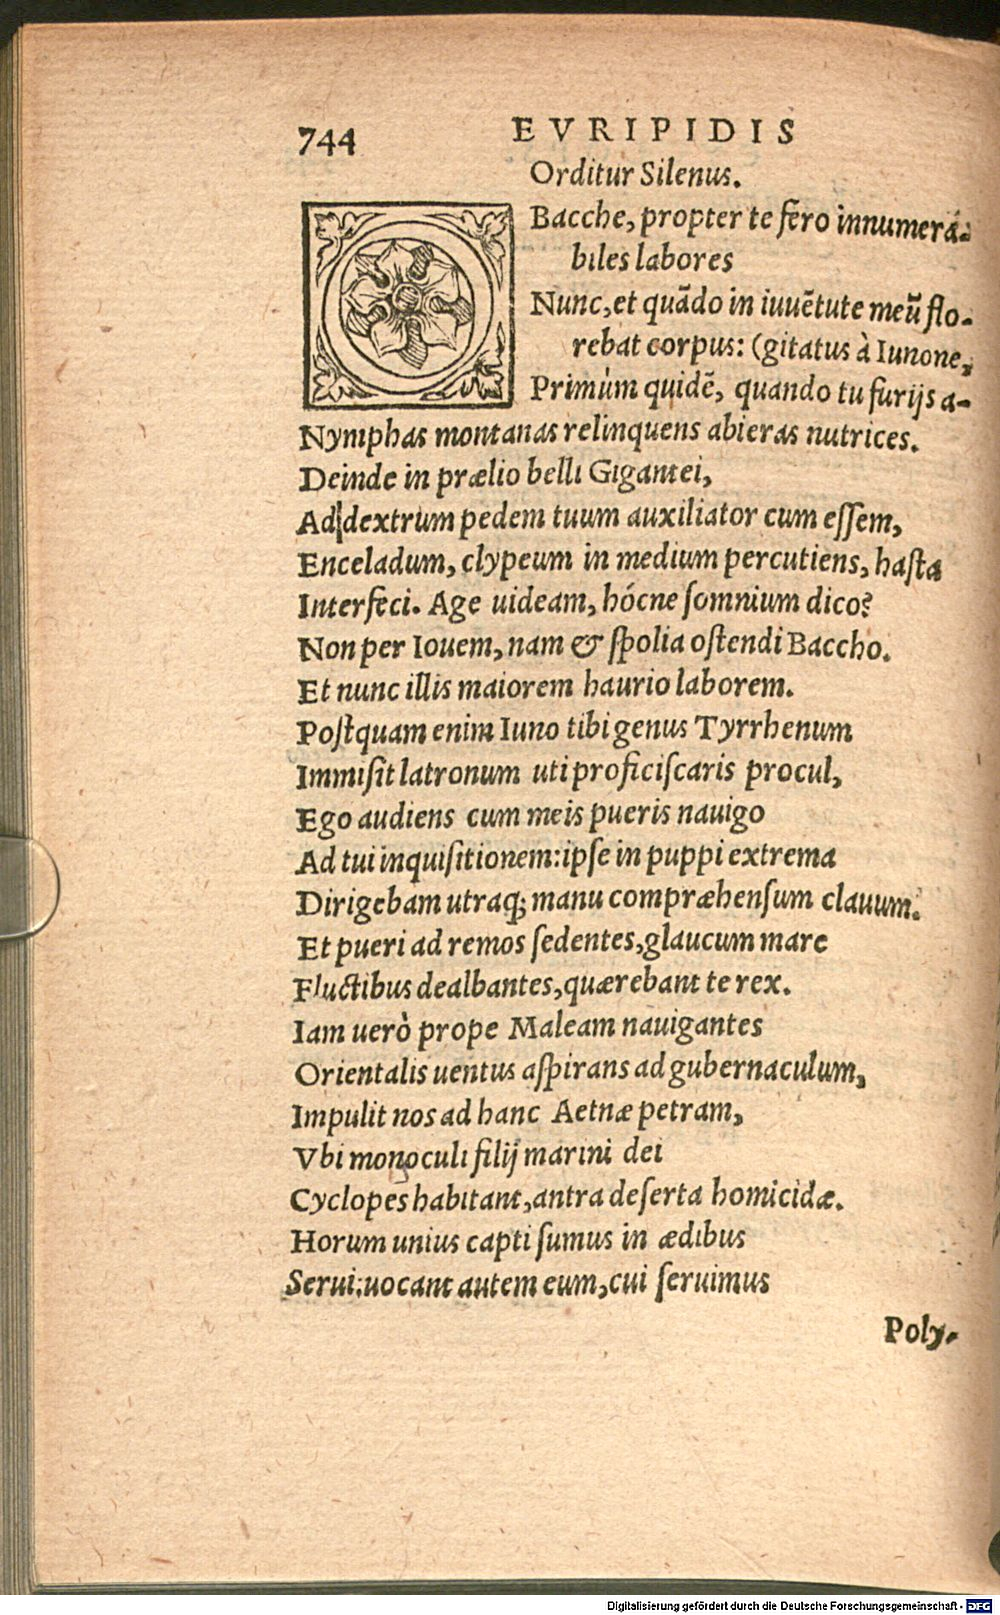 744 EVRIPIDIS
Orditur Silenus.
O Bacche, propter te fero innumerá-
biles labores
Nunc, et quãdo in iuuẽtute meũ flo-
rebat corpus: (gitatus à Iunone,
Primùm quidẽ, quando tu furijs a-
Nymphas montanas relinquens abieras nutrices.
Deinde in prælio belli Gigantei,
Ad dextrum pedem tuum auxiliator cum essem,
Enceladum, clypeum in medium percutiens, hasta
Interfeci. Age uideam, hócne somnium dico?
Non per Iouem, nam & spolia ostendi Baccho.
Et nunc illis maiorem haurio laborem.
Postquam enim Iuno tibi genus Tyrrhenum
Immisit latronum uti proficiscaris procul,
Ego audiens cum meis pueris nauigo
Ad tui inquisitionem: ipse in puppi extrema
Dirigebam utraq; manu compræhensum clauum.
Et pueri ad remos sedentes, glaucum mare
Fluctibus dealbantes, quærebant te rex.
Iam uerò prope Maleam nauigantes
Orientalis uentus aspirans ad gubernaculum,
Impulit nos ad hanc Aetnæ petram,
Vbi monoculi filij marini dei
Cyclopes habitant, antra deserta homicidæ.
Horum unius capti sumus in ædibus
Serui: uocant autem eum, cui seruimus
Poly-
Digitalisierung gefördert durch die Deutsche Forschungsgemeinschaft - DFG